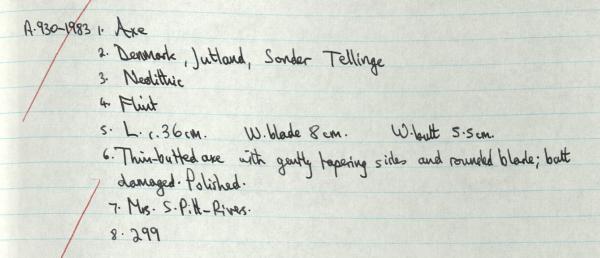 A.930-1983 1. Axe
2. Denmark, Jutland, Sonder Tellinge
3. Neolithic
4. Flint
5. L. c.36cm. W.blade 8cm. W.butt 5.5cm.
6. Thin-butted axe with gently tapering sides and rounded blade; butt
damaged. Polished.
7. Mrs. S. Pitt-Rivers.
8. 299